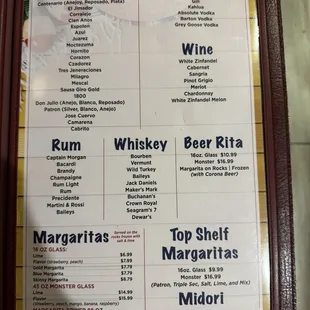 Centenario (Anejoy, Reposado, Plata)
El Jimador
Corralejo
Cien Anos
Espolon
Azul
Juarez
Moctezuma
Hornito
Corazon
Czadorez
Tres Jeneraciones
Milagro
Mescal
Sausa Giro Gold
1800
Don Julio (Anejo, Blanco, Reposado)
Patron (Silver, Blanco, Anejo)
Jose Cuervo
Camarena
Cabrito
Gin
Kahlua
Absolute Vodka
Barton Vodka
Grey Goose Vodka
Wine
White Zinfandel
Cabernet
Sangria
Pinot Grigio
Merlot
Chardonnay
White Zinfandel Melon
Rum
Captain Morgan
Bacardi
Brandy
Champaigne
Rum Light
Rum
Precidente
Martini & Rossi
Baileys
Whiskey
Bourben
Vermunt
Wild Turkey
Baileys
Jack Daniels
Maker's Mark
Buchanan's
Crown Royal
Seagram's 7
Dewar's
Beer Rita
16oz. Glass $10.99
Monster $16.99
Margarita on Rocks | Frozen
(with Corona Beer)
Margaritas
Served on the
rocks frozen with
salt & lime
16 OZ GLASS:
Lime $6.99
Flavor (strawberry, peach) $7.99
Gold Margarita $7.79
Blue Margarita $7.79
Skinny Margarita $6.79
45 OZ MONSTER GLASS
Lime $14.99
Flavor $15.99
(strawberry, peach, mango, banana, raspberry)
Top Shelf
Margaritas
16oz. Glass $9.99
Monster $16.99
(Patron, Triple Sec, Salt, Lime, and Mix)
Midori